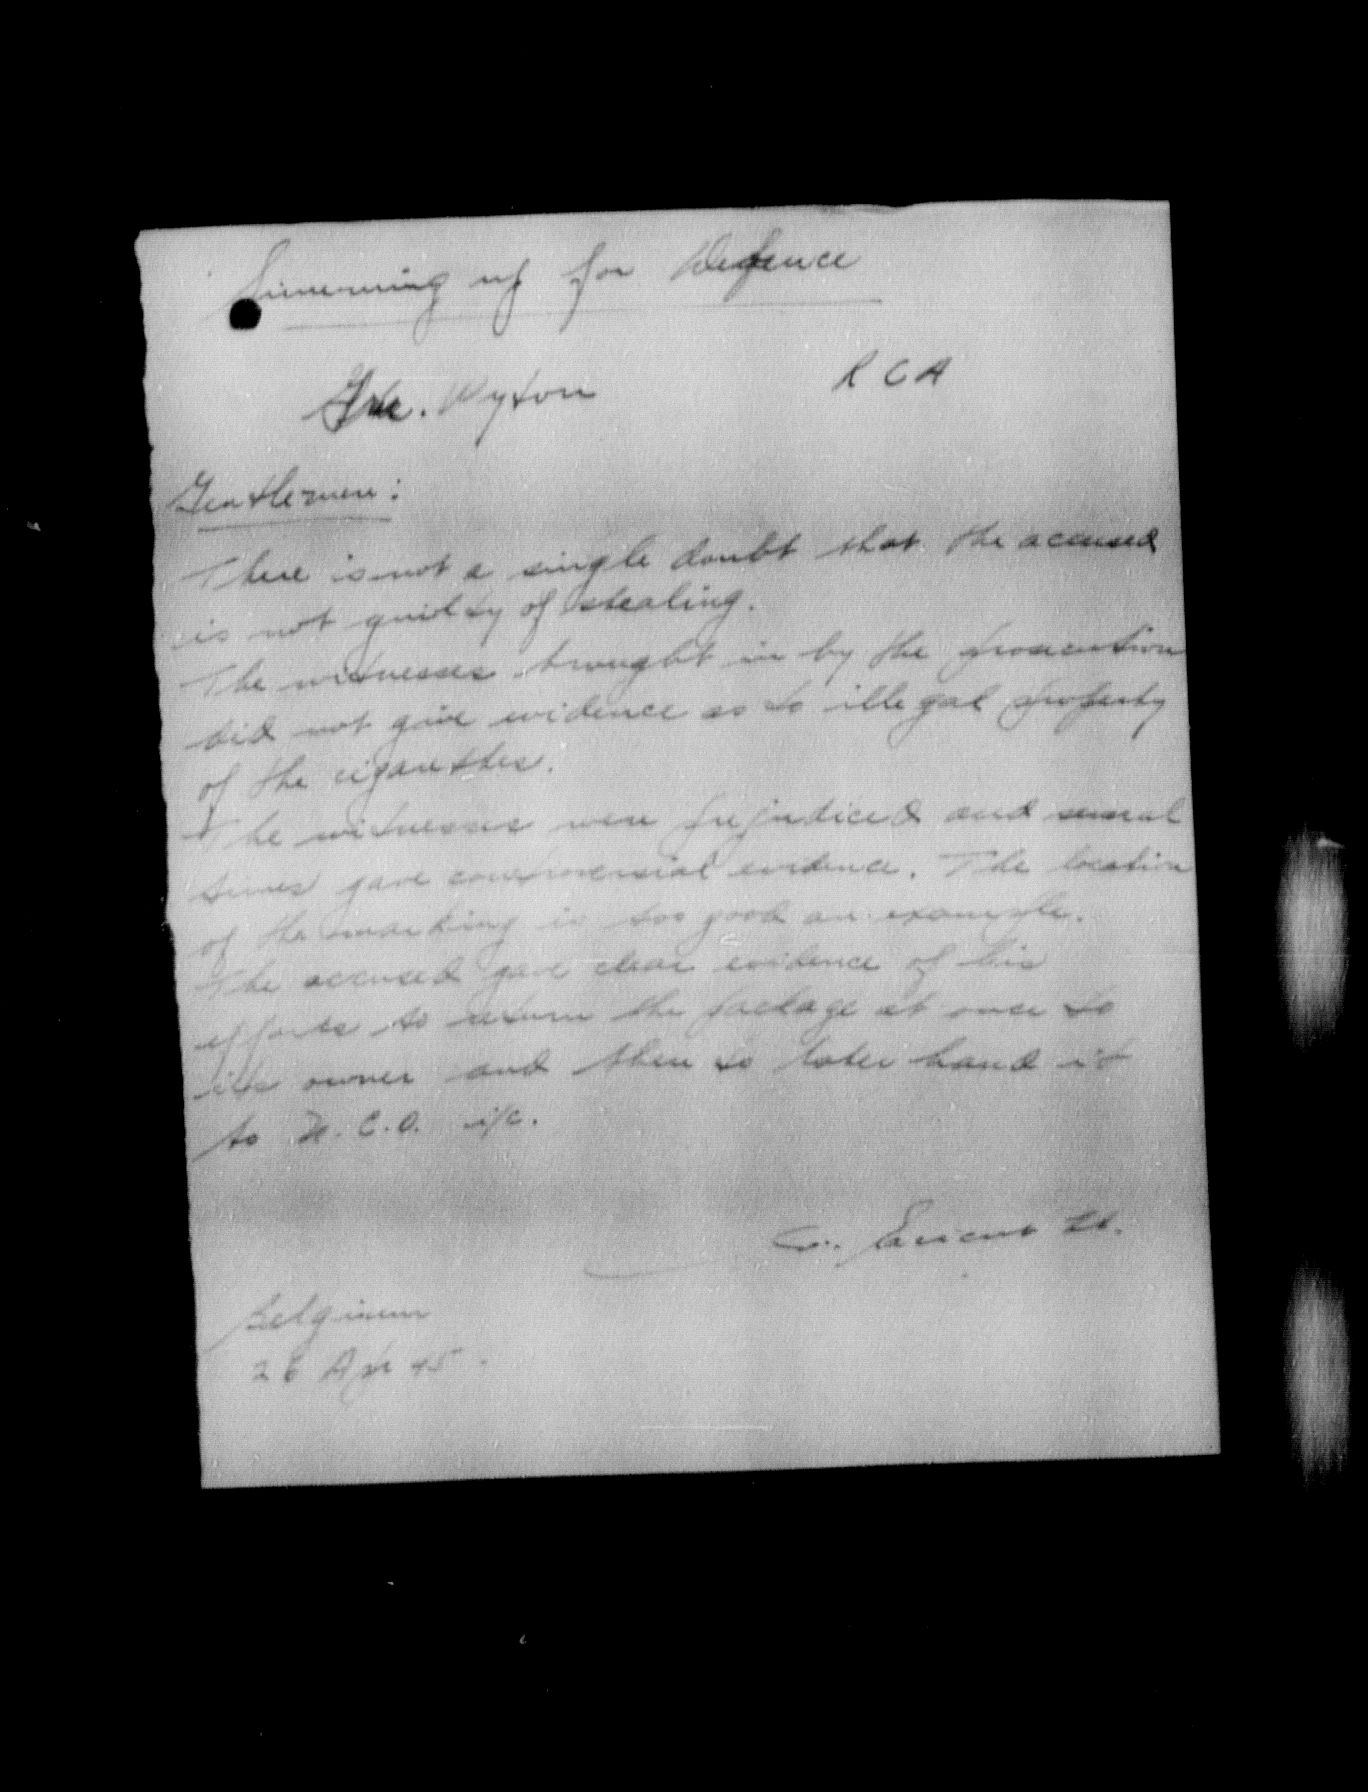 Summing up for Defence
Gnr. Wyton RCA
Gentlemen:
There is not a single doubt that the accused
is not guilty of stealing.
The witnesses brought in by the prosecution
did not give evidence as to illegal property
of the cigarettes.
The witnesses were prejudiced and several
times gave controversial evidence. The location
of the marking is too good an example.
The accused gave clear evidence of his
efforts to return the package at once to
its owner and then to later hand it
to N.C.O. i/c.
Lt.
Belgium
26 Apr 45.